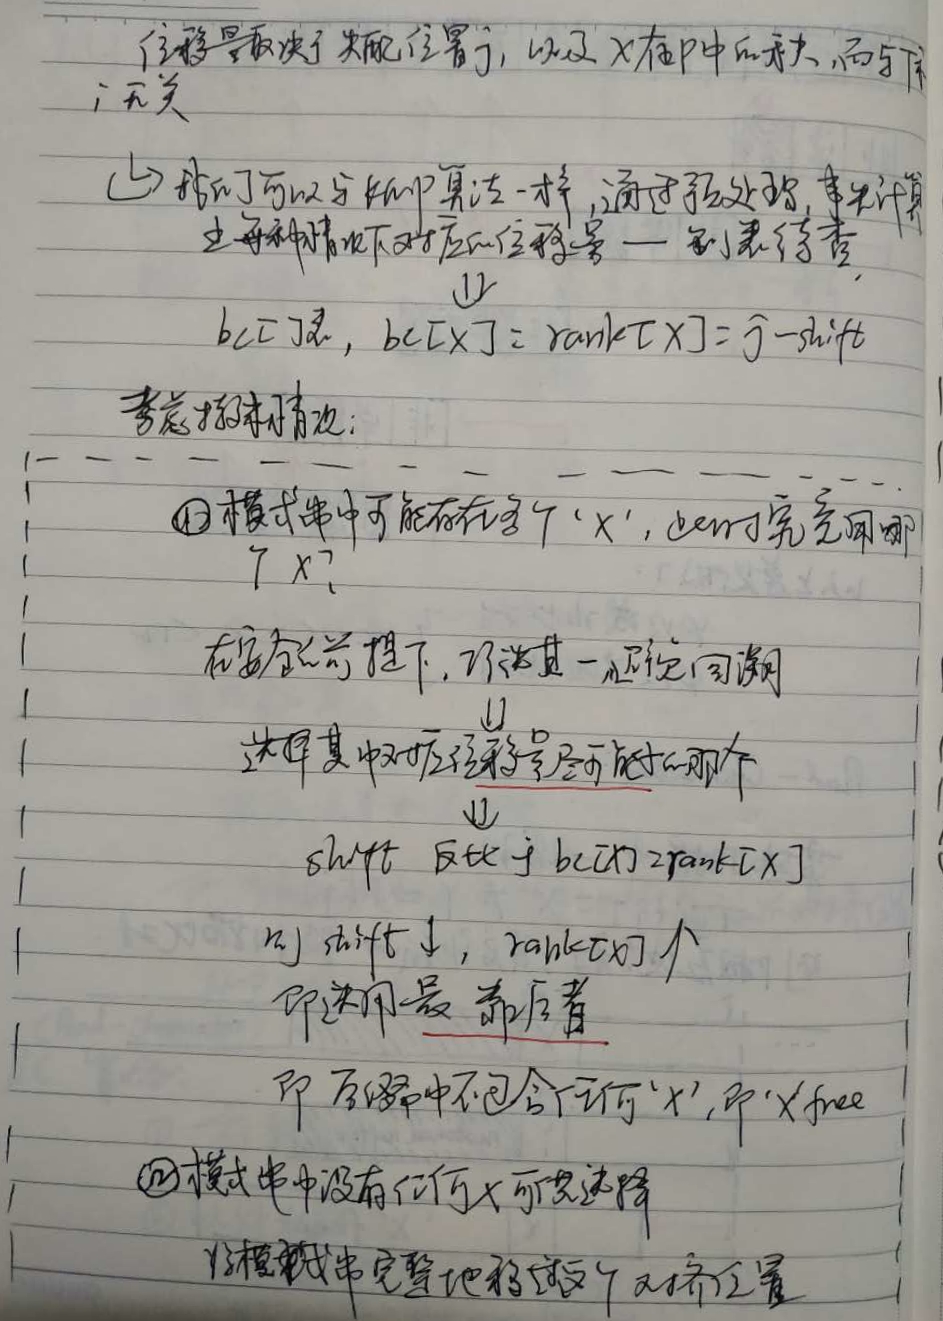 位移量取决于失配位置j,以及X在P中的秩,而与T和
i无关
↳ 我们可以与KMP算法一样,通过预处理,事先计算
出每种情况下对应的位移量 — 制表待查.
⇓
bc[]表, bc[X] = rank[X] = j-shift
考虑特殊情况:
① 模式串中可能存在多个'X',这时究竟用哪
个X?
在安全的前提下,巧选其一,避免回溯
⇓
选择其中对应位移量尽可能小的那个
⇓
shift 反比于 bc[X]=rank[X]
则 shift↓, rank[X]↑
即选用最靠后者
即后缀中不包含任何'X',即'X' free
② 模式串中没有任何X可供选择
将模式串完整地移过这个对齐位置